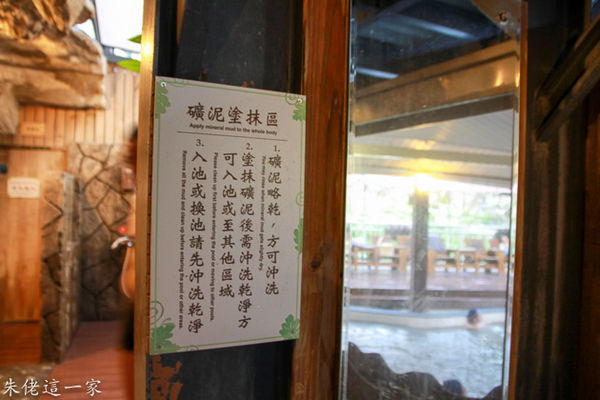 礦泥塗抹區
Apply mineral mud to the whole body
1. 礦泥略乾，方可沖洗
You may rinse when mineral mud gets slightly dry
2. 塗抹礦泥後需沖洗乾淨方
可入池或至其他區域
Please clean up first before entering the pool or moving to other pools.
3. 入池或換池請先沖洗乾淨
Remove all the mud and clean up before entering the pool or other areas.
朱佬這一家